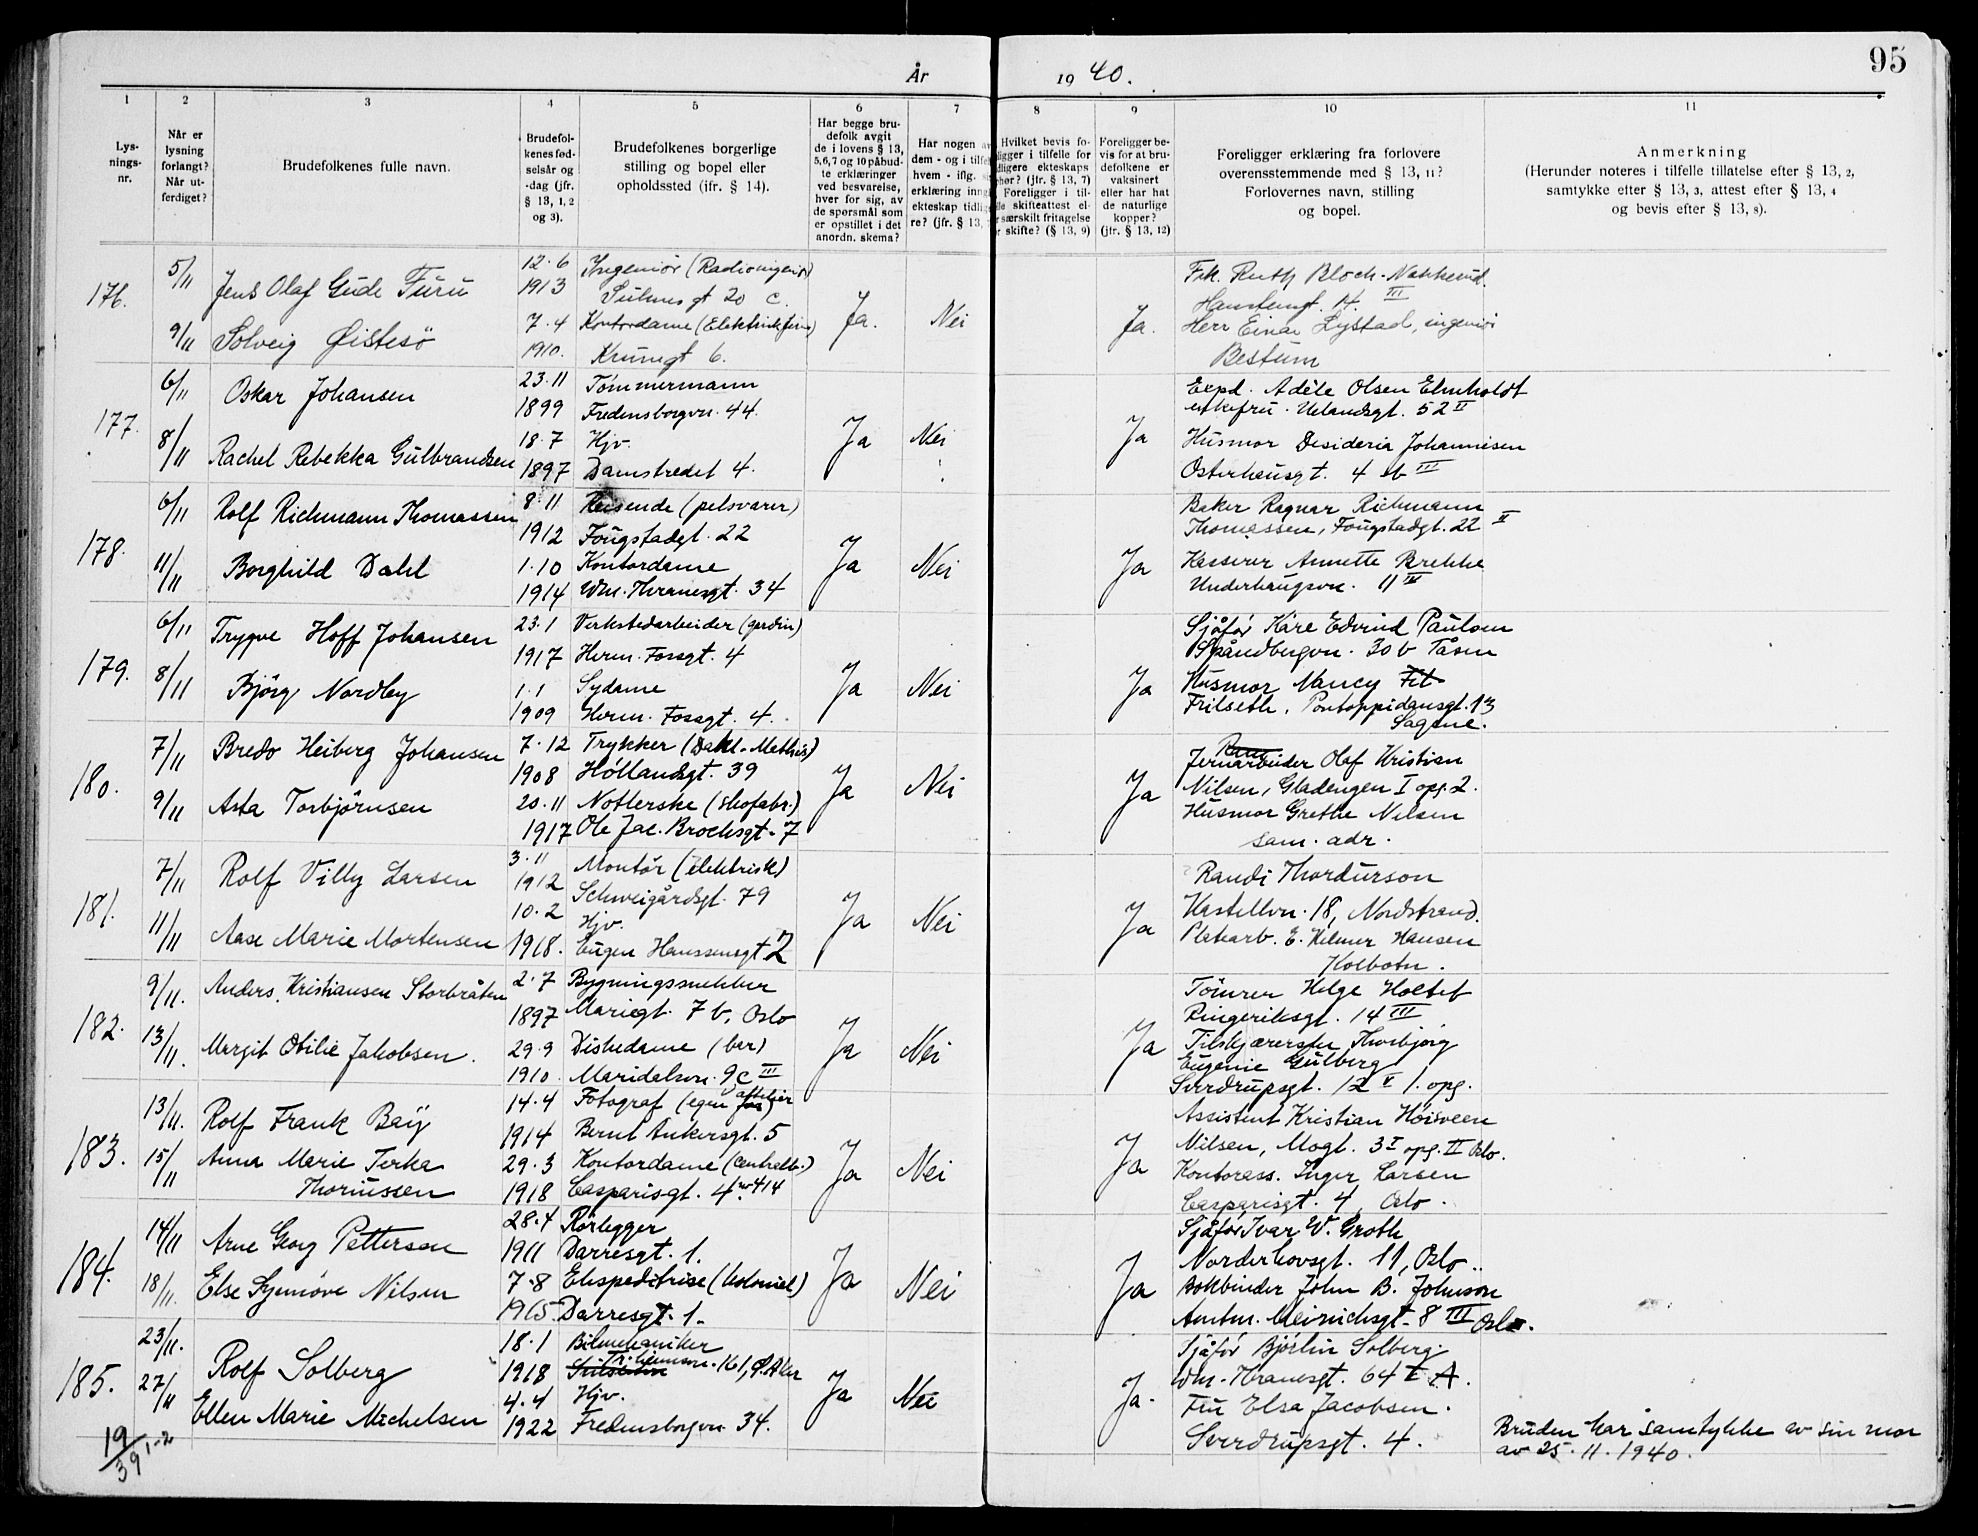 95
År 1940.
1 2 3 4 5 6 7 8 9 10 11
Lysnings-nr.
Når er lysning forlangt? Når utferdiget?
Brudefolkenes fulle navn.
Brudefolkenes fødselsår og -dag (jfr. § 13, 1, 2 og 3).
Brudefolkenes borgerlige stilling og bopel eller opholdssted (ifr. § 14).
Har begge brudefolk avgit de i lovens § 13, 5,6,7 og 10 påbudte erklæringer ved besvarelse, hver for sig, av de spørsmål som er opstillet i det anordn. skema?
Har nogen av dem - og i tilfel hvem - iflg. erklæring inng ekteskap tidlig re? (jfr. § 13,
Hvilket bevis foligger i tilfelle for dligere ekteskaps hør? (jfr. § 13, 7) Foreligger i tille skifteattest el- særskilt fritagelse r skifte? (§ 13, 9)
Foreligger bevis for at brudefolkene er vaksinert eller har hat de naturlige kopper? (jfr. § 13, 12)
Foreligger erklæring fra forlovere overensstemmende med § 13, 11? Forlovernes navn, stilling og bopel.
Anmerkning
(Herunder noteres i tilfelle tillatelse efter § 13, 2, samtykke etter § 13, 3, attest efter § 13, 4 og bevis efter § 13, 8).
176.
5/11 Jens Olaf Gude Furu 12.6 1913 Ingeniør (Radioingeniør)
gt 20 c.
9/11 Solveig Øistesö 7.4 1910. Kontordame
Krumgt 6.
Ja. Nei Ja.
Frk. Ruth Bloch-Nakkerud.
14. III
Herr Einar Lystad, ingeniör
Bestum
177.
6/11 Oskar Johansen 23.11 1899 Tömmermann
Fredensborgvn. 44.
8/11 Rachel Rebekka Gulbrandsen 18.7 1897 Hjv.
Damstredet 4.
Ja Nei Ja
Expd. Adéle Olsen Elmholdt
enkefru. Uelandsgt. 52 II
Husmor Desideria Johannesen
Osterhausgt. 4 b III
178.
6/11 Rolf Richmann Thomassen 8.11 1912 Reisende (pelsvarer)
Fougstadgt. 22
11/11 Borghild Dahl 1.10 1914 Kontordame
Wm. Thranesgt. 34
Ja Nei Ja
Baker Ragnar Richmann
Thomassen, Fougstadgt. 22 II
Kasserer Annette Brekke
Underhaugsvn. 11 III
179.
6/11 Trygve Hoff Johansen 23.1 1917 Verkstedarbeider (gardin)
Herm. Fossgt. 4
8/11 Björg Nordby 1.1 1909 Sydame
Herm. Fossgt. 4.
Ja Nei Ja
Sjåför Kåre Edvind Paulsen
Spångbergvn. 30 b Tåsen
Husmor Nancy
Frilseth, Pontoppidansgt. 13
Sagene.
180.
7/11 Bredo Heiberg Johansen 7.12 1908 Trykker
Hollandsgt. 39
9/11 Asta Torbjörnsen 20.11 1917 Notlerske (skofabr.)
Ole Jac. Brochsgt. 7
Ja Nei Ja
Jernarbeider Olaf Kristian
Nilsen, Gladengen I opg. 2.
Husmor Grethe Nilsen
sam. adr.
181.
7/11 Rolf Villy Larsen 3.11 1912 Montör (elektrisk)
Schweigårdsgt. 79
11/11 Aase Marie Mortensen 10.2 1918. Hjv.
Eugen Hanssensgt 2
Ja Nei Ja
Randi Thordurson
Kastellvn. 18, Nordstrand.
Platearb. E. Helmer Hansen
Kolbotn.
182.
9/11. Anders Kristiansen Storbråten 2.7 1897 Bygningssnekker
Mariegt. 7 b, Oslo
13/11. Margit Otilie Jakobsen. 29.9 1910 Diskedame (bar)
Maridalsvn. 9c III
Ja Nei Ja
Tömrer Helge Holtet
Ringeriksgt. 14 III
Tilskjærerske Thorbjörg
Eugenie Gulberg
Sverdrupsgt. 12 V 1. opg.
183.
13/11. Rolf Frank Baÿ 14.4 1914 Fotograf (egen attelier)
Bernt Ankersgt. 5
15/11 Anna Marie Terka Thoriussen 29.3 1918 Kontordame (centralb.)
Casparisgt. 4 nr 414
Ja Nei Ja
Assistent Kristian Höisveen
Nilsen, Mogt. 3 I opg. II Oslo.
Kontorass. Inger Larsen
Casparisgt. 4, Oslo.
184.
14/11 Arne Georg Pettersen 28.4 1911 Rörlegger
Darresgt. 1.
18/11. Else Synnöve Nilsen 7.8 1915 Ekspeditrise (kolonial)
Darresgt. 1.
Ja Nei Ja
Sjåför Ivar W. Groth
Norderhovsgt. 11, Oslo..
Bokbinder John B. Johnson
Amtm. Meinichsgt. 8 III Oslo.
185.
23/11. Rolf Solberg 18.1 1918 Bilmekaniker
Tr.heimsvn. 161, Ø. Aker
27/11 Ellen Marie Michelsen 4.4 1922 Hjv.
Fredensborgvn 34.
Ja Nei Ja.
Sjåför Björlin Solberg.
Wm. Thranesgt. 64 I A.
Fru Elsa Jacobsen.
Sverdrupsgt. 4.
Bruden har samtykke av sin mor
av 25.11.1940.
19/39 1-2